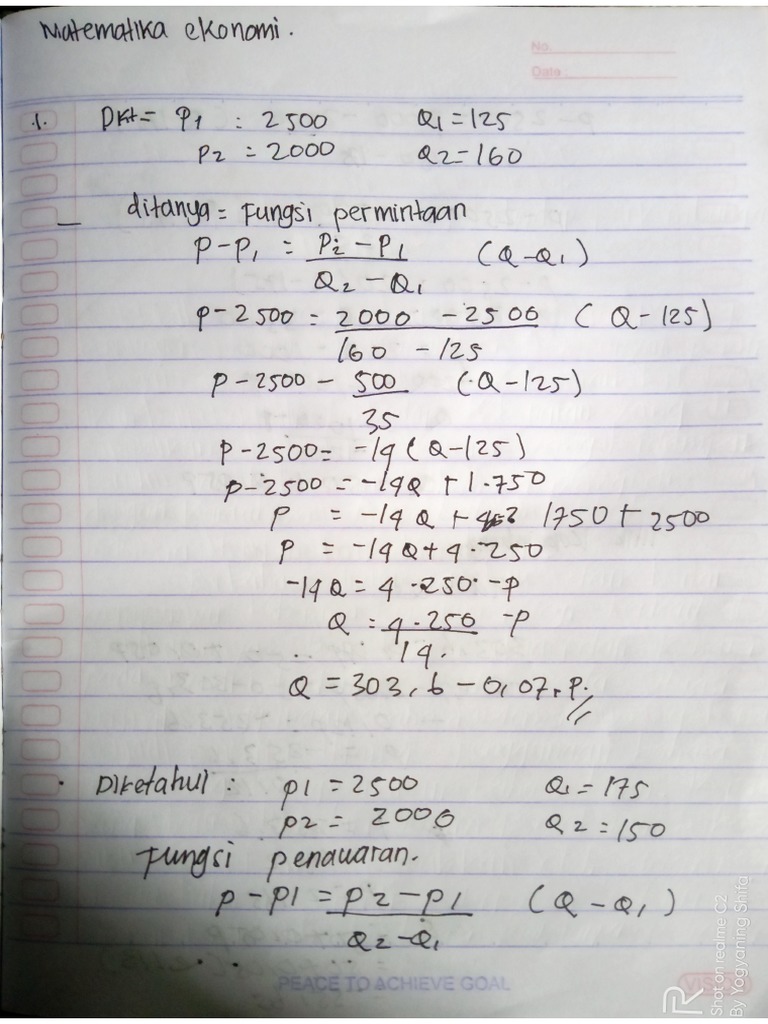 Matematika ekonomi.
No.
Date :
1. Dkt = P1 : 2500 Q1 = 125
P2 : 2000 Q2 = 160
— ditanya = Fungsi permintaan
P - P1 = P2 - P1 / Q2 - Q1 (Q - Q1)
P - 2500 = 2000 - 2500 / 160 - 125 (Q - 125)
P - 2500 - 500 / 35 (Q - 125)
P - 2500 = -14 (Q - 125)
P - 2500 = -14Q + 1.750
P = -14Q + 1750 + 2500
P = -14Q + 4.250
-14Q = 4.250 - P
Q = 4.250 / 14. - P
Q = 303,6 - 0,07.P.//
. Diketahui : P1 = 2500 Q1 = 175
P2 = 2000 Q2 = 150
Fungsi penawaran.
P - P1 = P2 - P1 / Q2 - Q1 (Q - Q1)
PEACE TO ACHIEVE GOAL
VISION
Shot on realme C2
By Yogyaning Shifa